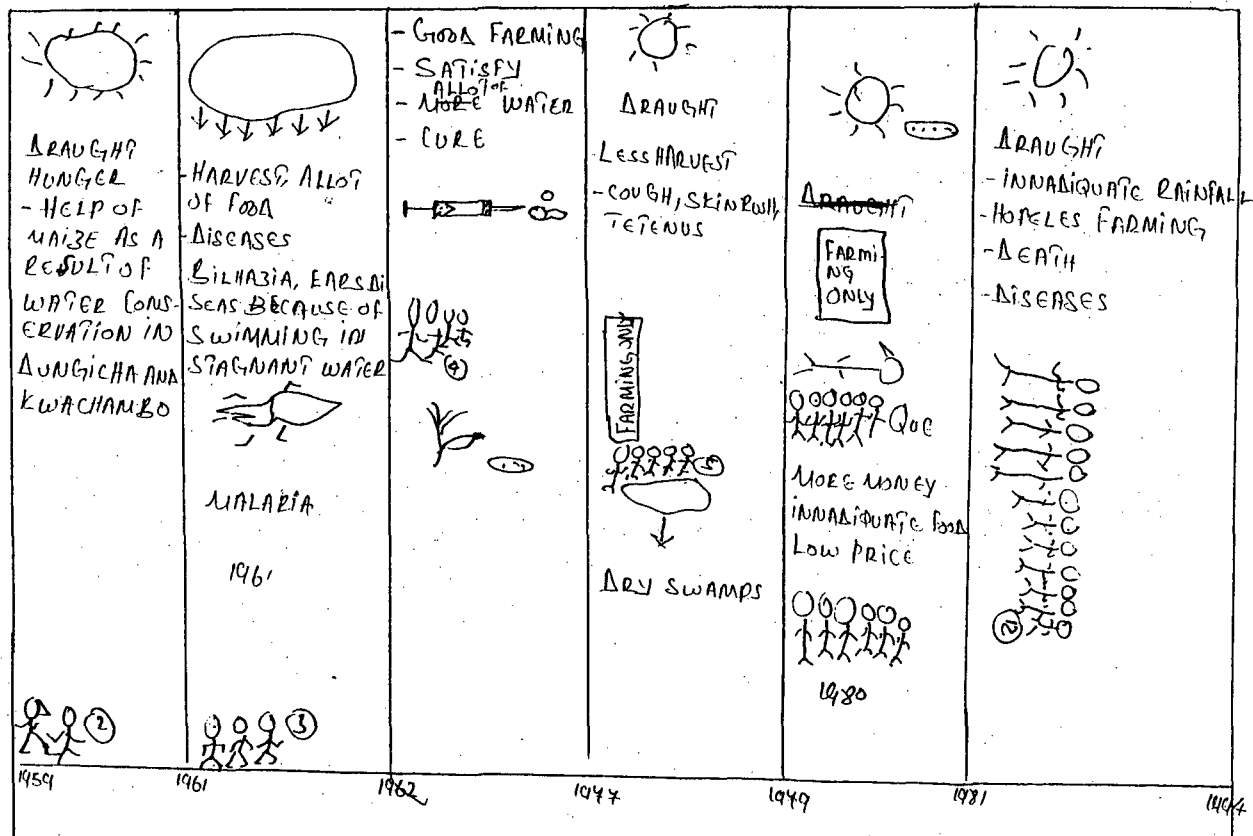 DRAUGHT
HUNGER
- HELP OF
MAIZE AS A
RESULT OF
WATER CONS-
ERVATION IN
DUNGICHA AND
KWACHAMBO
2
- HARVEST, ALLOT
OF FOOD
- DISEASES
BILHAZIA, EARS DI
SEAS BECAUSE OF
SWIMMING IN
STAGNANT WATER
MALARIA
1961
3
- GOOD FARMING
- SATISFY
ALLOT OF
- MORE WATER
- CURE
4
DRAUGHT
LESS HARVEST
- COUGH, SKIN
TETENUS
FARMING ONLY
5
DRY SWAMPS
DRAUGHT
FARMI-
NG
ONLY
QUE
MORE MONEY
INNADIQUATE FOOD
LOW PRICE
1980
DRAUGHT
- INNADIQUATE RAINFALL
- HOPELES FARMING
- DEATH
- DISEASES
1959 1961 1962 1977 1979 1981 1994